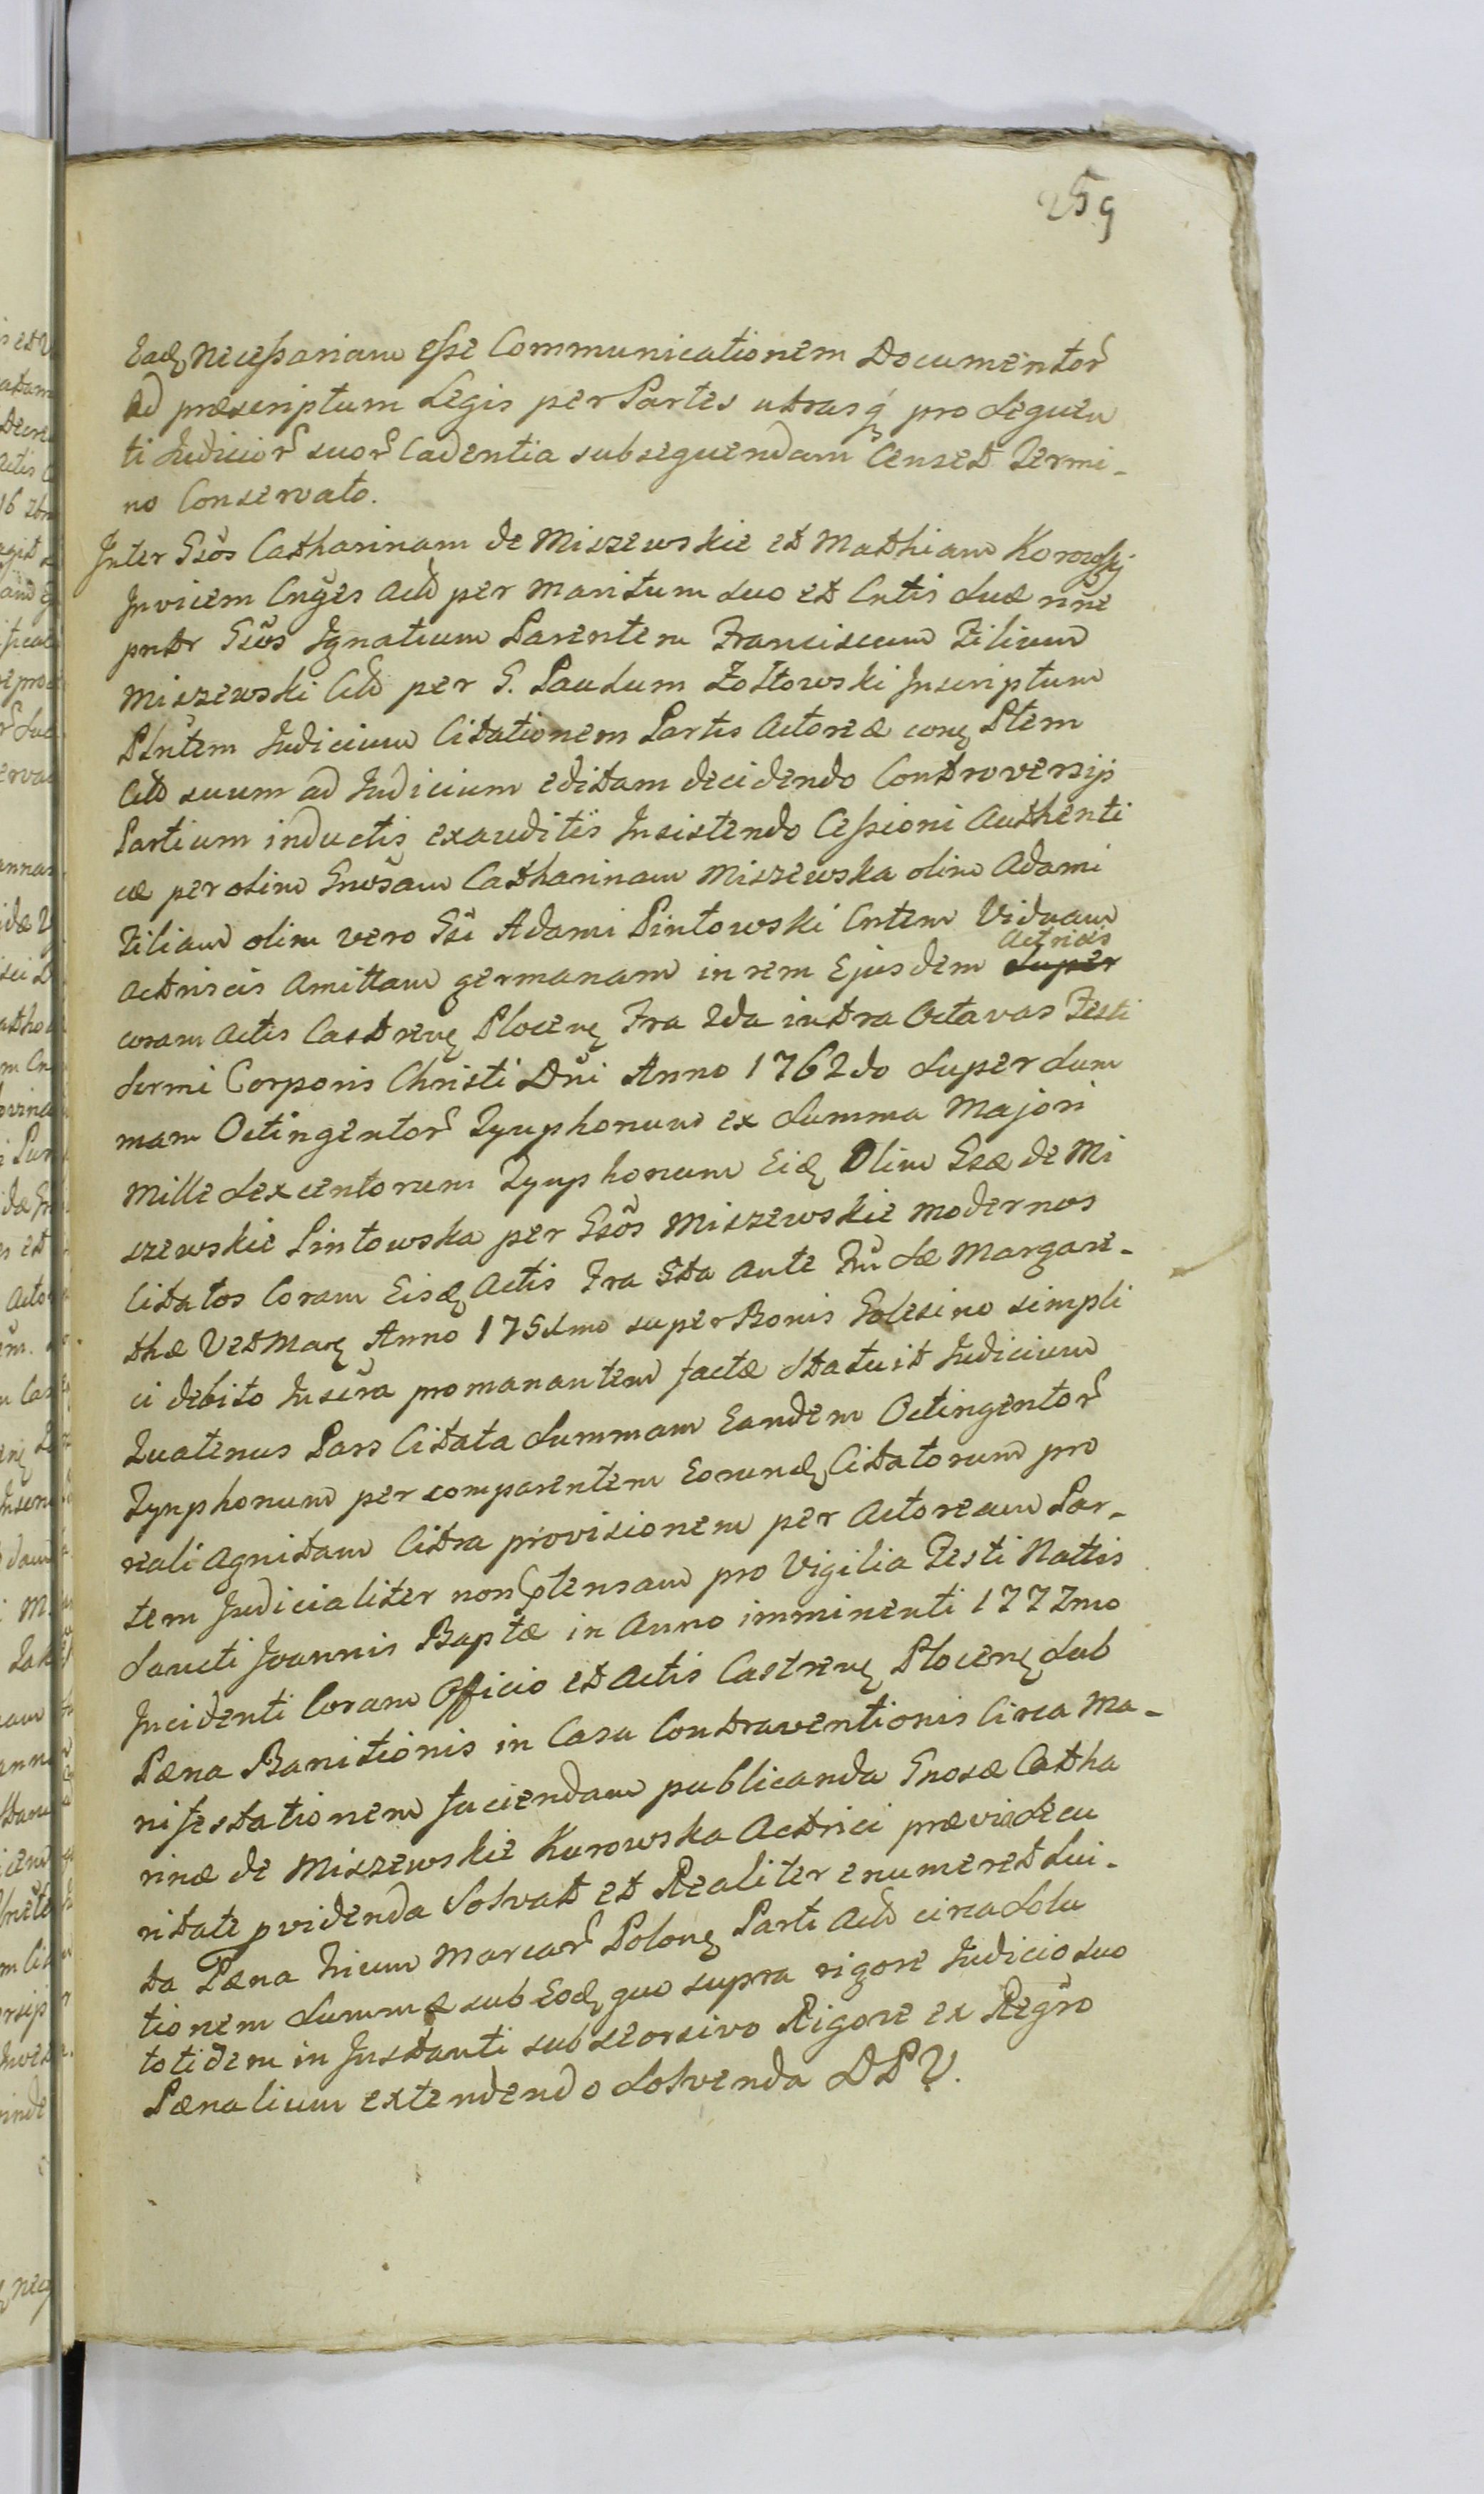 259
Eadq necessariam esse Communicationem Documentor
Ad præscriptum Legis per Partes utrasq pro sequen
ti Judicior suor Cadentia subsequendam Censet Termi-
no Conservato.
Inter Gsos Catharinam de Miszewskie et Mathiam Korowskj
Invicem Cnges Act per Maritum suo et Cntis suæ nne
pntr Gsos Ignatium Parentem Franciscum Filium
Miszewski Citt per G. Paulum Zołtowski Inscriptum
Plntem Judicium Citationem Partis Actoreæ conq Ptem
Citt suum ad Judicium editam decidendo Controversijs
Partium inductis exauditis Insistendo Cessioni Authenti
cæ per olim Gnosam Catharinam Miszewska olim Adami
Filiam olim vero Gsi Adami Pintowski Cntem Viduam
Actricis Amittam germanam in rem Ejusdem Actricis
coram Actis Castrenq Plocenq Fra 2da intra Octavas Festi
Sscmi Corporis Christi Dni Anno 1762do super sum
mam Octingentor Tynphonum ex summa Majori
Mille sexcentorum Tynphonum Eidq Olim Gsæ de Mi
szewskie Pintowska per Gsos Miszewskie modernos
Citatos Coram Eisdq Actis Fra 5ta ante Fm Sæ Margare-
thæ Vet Marq Anno 175Xmo super Bonis Golesino simpli
ci debito Inscra promanantem factæ Statuit Judicium
Quatenus Pars Citata summam Eandem Octingentor
Tynphonum per comparentem Eorundq Citatorum pro
reali Agnitam Citra provisionem per Actoream Par-
tem Judicialiter non ptensam pro Vigilia Festi Nattis
Sancti Joannis Baptæ in Anno imminenti 1777mo
Incidenti Coram Officio et Actis Castrenq Plocenq sub
Pæna Banitionis in Casu Contraventionis Circa Ma-
nifestationem faciendam publicanda Gnosæ Catha
rinæ de Miszewskie Kurowska Actrici præviâ secu
ritate pvidenda Solvat et Realiter enumeret Lui-
ta Pæna trium Marcar Polonq Parti Act circa Solu
tionem Summæ sub Eodq quo supra rigore Judicio suo
totidem in Instanti sub seorsivo Rigore ex Regro
Pænalium extendendo Solvenda DPV.